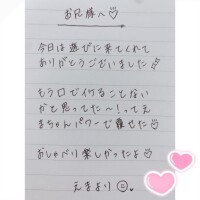 お兄様へ♡
今日は遊びに来てくれて
ありがとうございました
もう口でイけることない
かと思ってた〜!ってえ
まちゃんパワーで痩せた♡
おしゃべり楽しかったよ♡
えまより☺